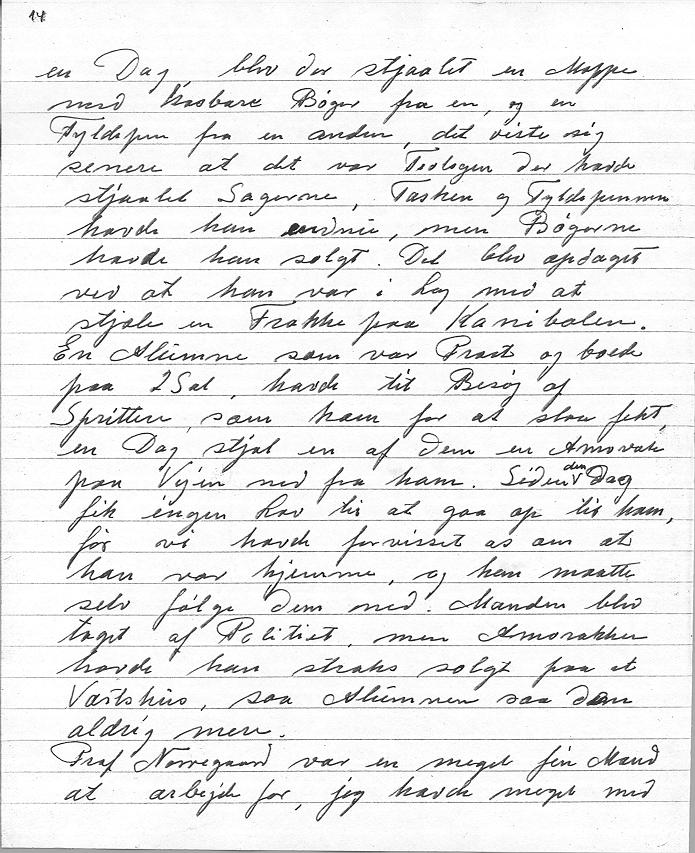 14
en Dag, blev der stjaalet en Mappe
med kosbare Bøger fra en, og en
Fyldepen fra en anden, det viste sig
senere at det var Teologen der havde
stjaalet Sagerne, Tasken og Fyldepennen
havde han endnu, men Bøgerne
havde han solgt. Det blev opdaget
ved at han var i Lag med at
stjæle en Frakke paa Kanibalen.
En Alumne som var Præst og boede
paa 2 Sal, havde tit Besøg af
Sprittere, som kom for at slaa fekt,
en Dag stjal en af dem en
paa Vejen ned fra ham. Siden den Dag
fik ingen Lov til at gaa op til ham,
før vi havde forvisset os om at
han var hjemme, og han maatte
selv følge dem ned. Manden blev
taget af Politiet, men Amorakken
havde han straks solgt paa et
Værtshus, saa Alumnen saa den
aldrig mere.
Prof Nørregaard var en meget fin Mand
at arbejde for, jeg havde meget med